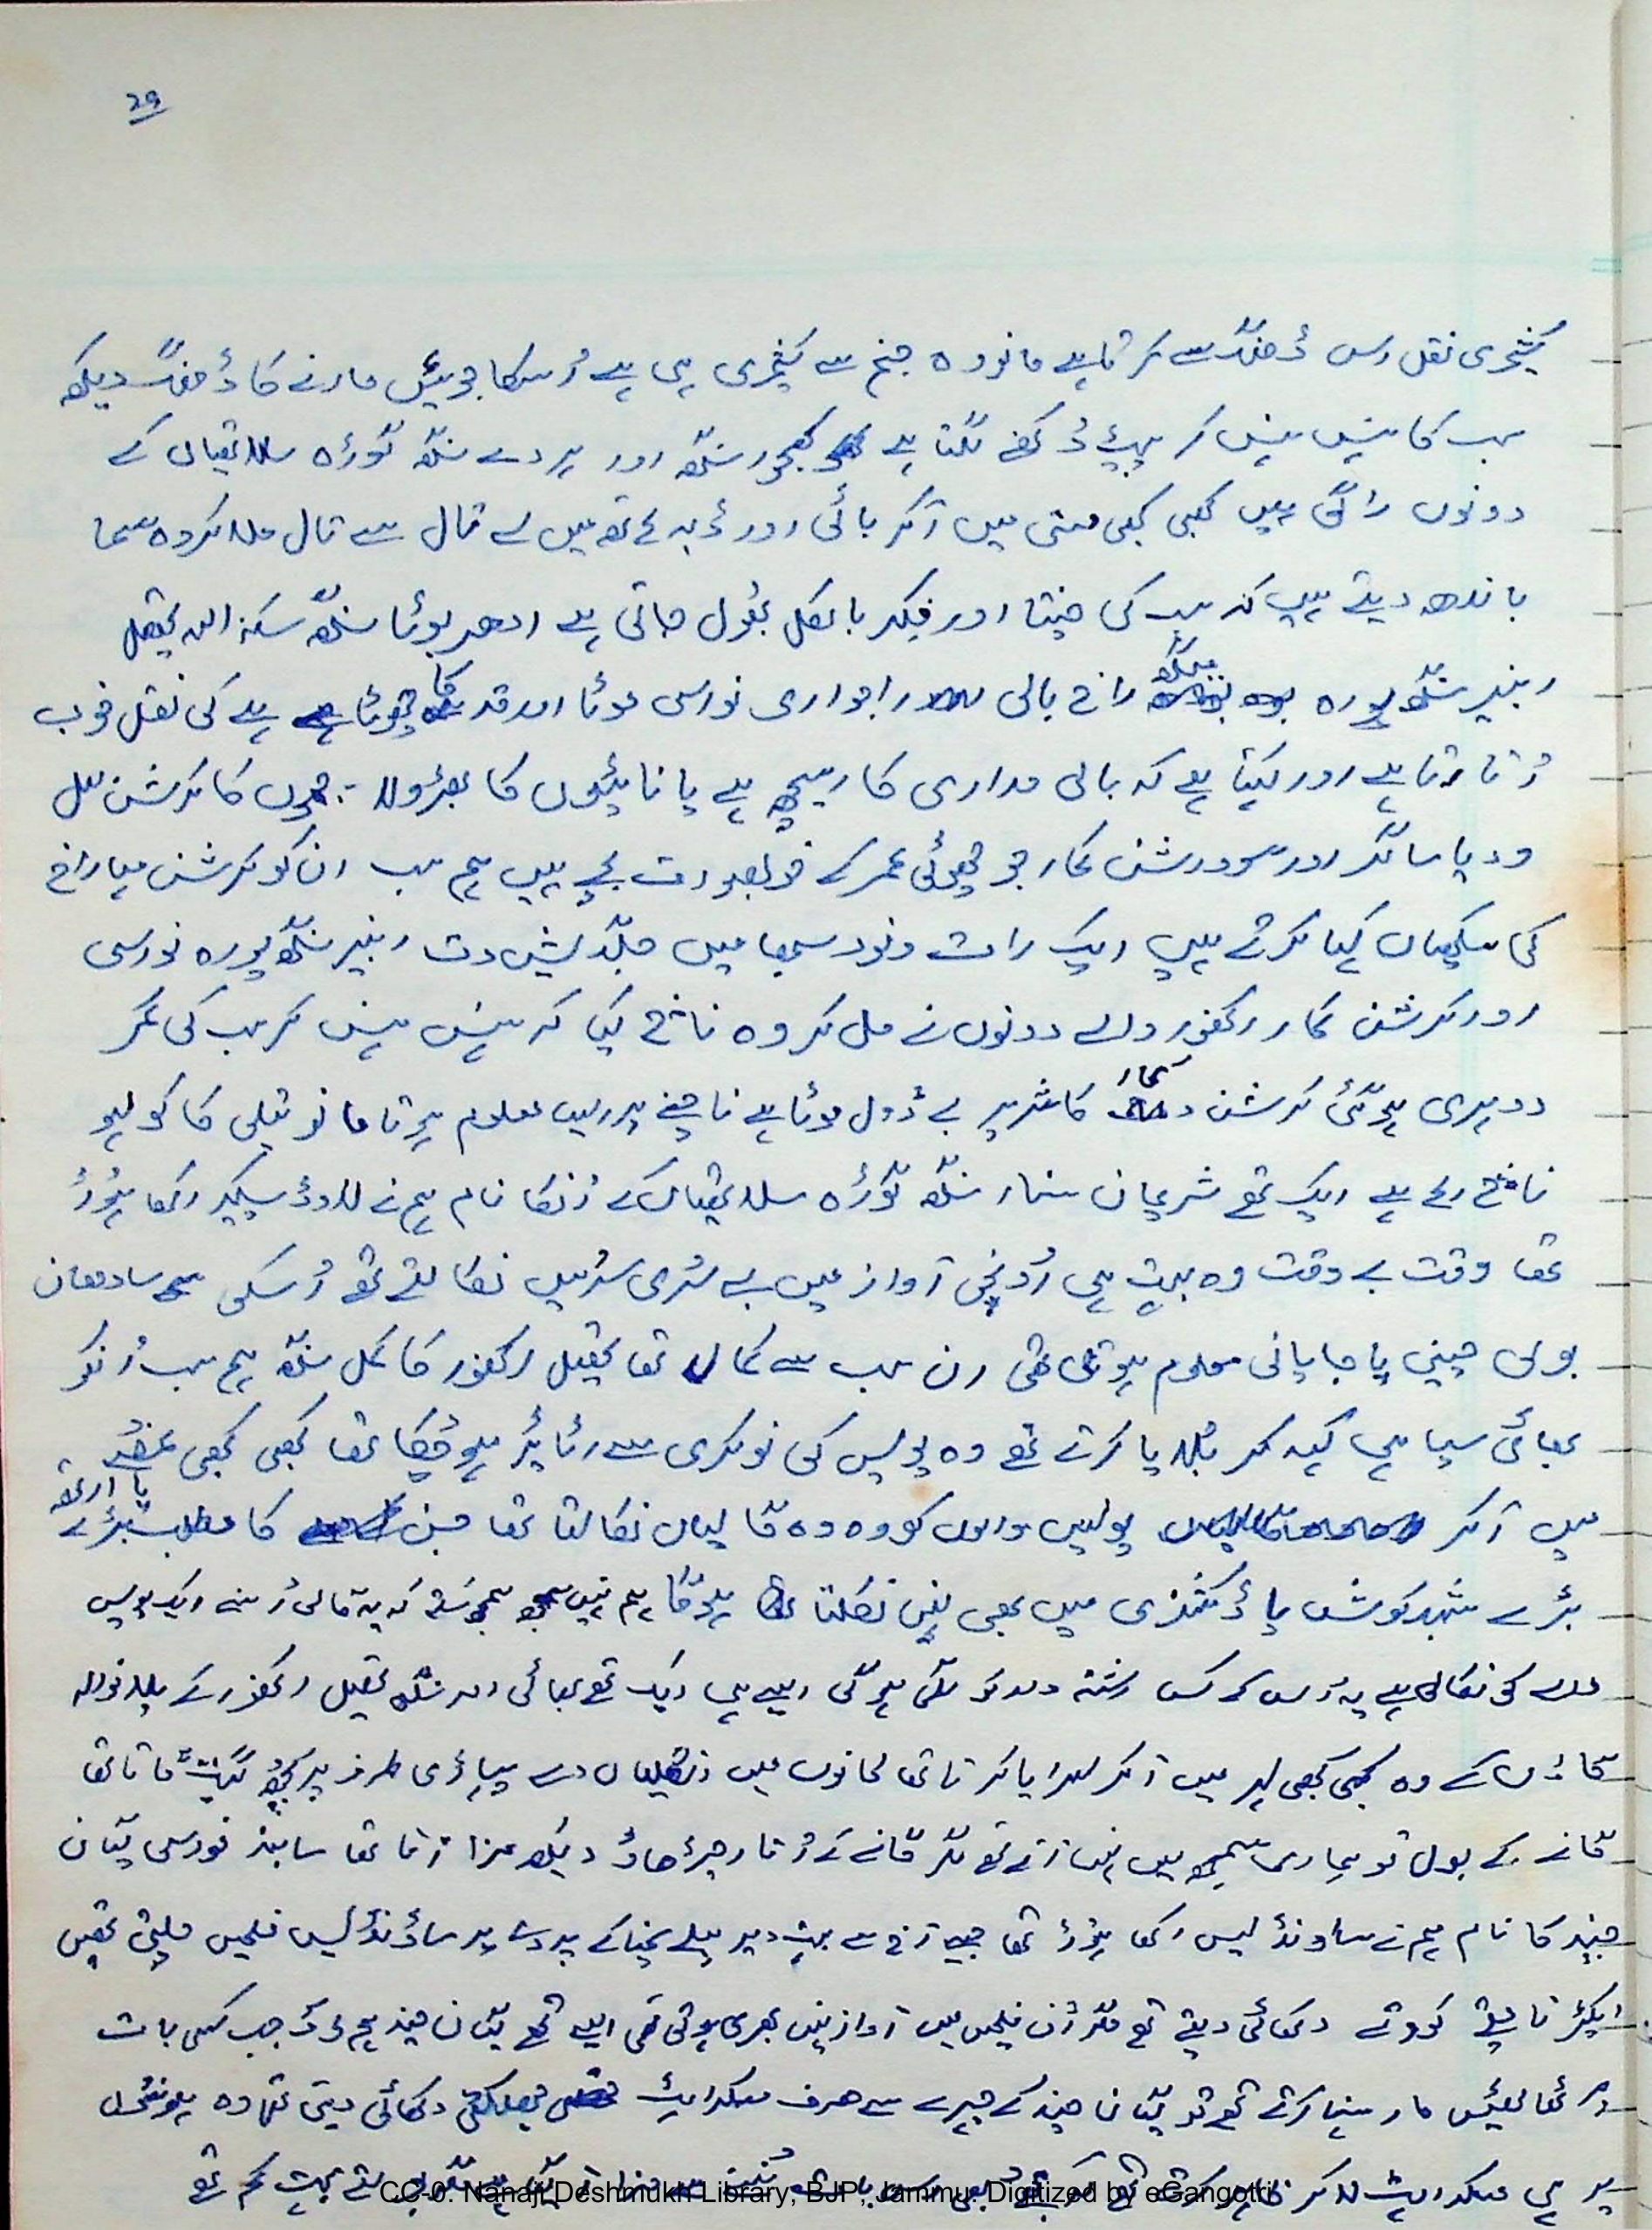 29
کھچری نقل اس ڈھنگ سے کرتا ہے مانو وہ جنم سے کھچری ہی ہے اُسکا جو ہیئں مارنے کا ڈھنگ دیکھ
سب کا ہنس ہنس کر پیٹ دُکھنے لگتا ہے کھجور سنگھ اور ہردے سنگھ گوڑہ سلاتھیاں کے
دونوں راگی ہیں کبھی کبھی مستی میں آکر بالٹی اور ڈبہ ہاتھ میں لے تال سے تال ملا کر وہ سما
باندھ دیتے ہیں کہ سب کی چنتا اور فکر بالکل بھُول جاتی ہے ادھر بوٹا سنگھ سکنہ تحصیل
رنبیر سنگھ پورہ راج بالی راجواری نواسی موٹا اور قد کا چھوٹا ہے کی نقل خوب
اُتارتا ہے اور کہتا ہے کہ بالی مداری کا ریچھ ہے یا نائیوں کا بھڑولا - جموں کا کرشن لال
ودیا ساگر اور سودرشن کمار جو چھوٹی عمر کے خوبصورت بچے ہیں ہم سب ان کو کرشن مہاراج
کی سکھیاں کہا کرتے ہیں ایک رات ونود سبھا میں جگدیش دت رنبیر سنگھ پورہ نواسی
اور کرشن کمار اکھنور والے دونوں نے مل کر وہ ناچ کیا کہ ہنس ہنس کر سب کی کمر
دوہری ہو گئی کرشن کمار کا شریر بے ڈول موٹا ہے ناچنے پر ایسے معلوم ہوتا مانو تیلی کا کولہو
ناچ رہا ہے ایک تھے شریمان سنسار سنگھ گوڑہ سلاتھیاں کے اُنکا نام ہم نے لاوڈ سپیکر رکھا ہُوا
تھا وقت بے وقت وہ بہت ہی اُونچی آواز میں بے سُری سُریں نکالتے تھے اُسکی سادھارن
بولی چینی یا جاپانی معلوم ہوتی تھی ان سب سے کمال تھا تحصیل اکھنور کا کمل سنگھ ہم سب اُنکو
بھائی سپاہی کہہ کر بُلایا کرتے تھے وہ پولیس کی نوکری سے رٹائیر ہو چُکا تھا کبھی کبھی غصہ
میں آکر پولیس والوں کو وہ وہ گالیاں نکالتا تھا جن کا مطلب یا ارتھ بڑے
بڑے شبد کوش یا ڈکشنری میں بھی نہیں نکلتا ہوگا ہم نہیں سمجھ سکتے کہ یہ گالی اُسنے ایک پولیس
والے کی نکالی ہے یہ اُس کے کس رشتہ دار کو لگی ہوگی ایسے ہی ایک تھے بھائی امر سنگھ تحصیل اکھنور کے پلانوالہ
گاؤں کے وہ کبھی کبھی لہر میں آکر لہرایا کرتا تھا کانوں میں انگلیاں دے پہاڑی طرز پر کچھ گیت گاتا تھا
گانے کے بول تو ہماری سمجھ میں نہیں آتے تھے مگر گانے کے اُتار چڑھاؤ دیکھ مزا آتا تھا سابنہ نواسی گیان
چند کا نام ہم نے ساونڈ لیس رکھا ہُوا تھا جیسے آج سے بہت دیر پہلے سنیما کے پردے پر ساؤنڈ لیس فلمیں چلتی تھیں
ایکٹر ناچتے کودتے دکھائی دیتے تھے مگر اُن فلموں میں آواز نہیں بھری ہوتی تھی ایسے تھے گیان چند ہم لوگ جب کسی بات
پر ٹھاٹھیں مار ہنسا کرتے تھے تو گیان چند کے چہرے سے صرف مسکراہٹ جھلکتی دکھائی دیتی تھی وہ ہونٹوں
پر ہی مسکراہٹ لا کر ظاہر کرتے تھے بہت کم تھے
CC-0. Nanaji Deshmukh Library, BJP, Jammu. Digitized by eGangotri